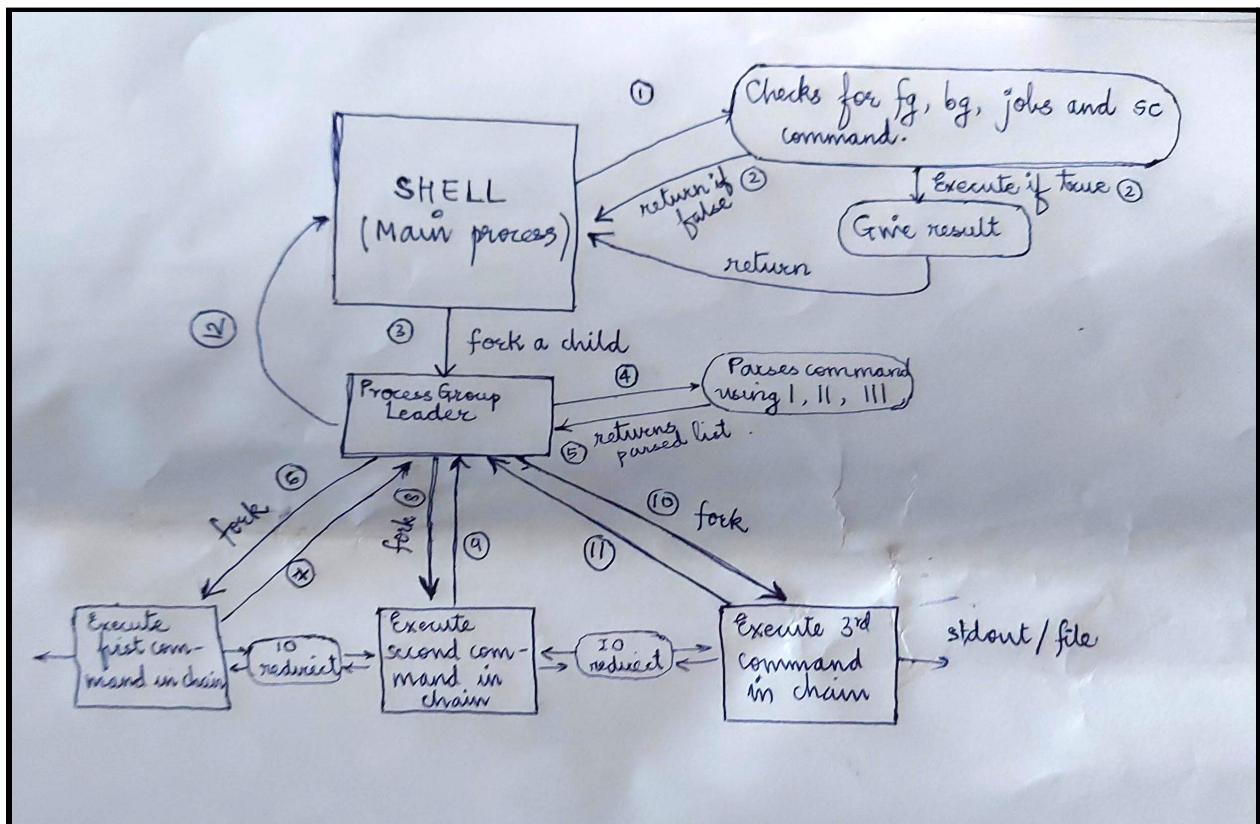 ①
Checks for fg, bg, jobs and sc
command.
SHELL
(Main process)
return if
false ②
Execute if true ②
Give result
return
⑫
③
fork a child
Process Group
Leader
④
Parses command
using |, ||, |||,
⑤ returns
parsed list.
fork ⑥
⑦
fork ⑧
⑨
⑩ fork
⑪
Execute
first com-
mand in chain
IO
redirect
Execute
second com-
mand in
chain
IO
redirect
Execute 3rd
command
in chain
stdout / file